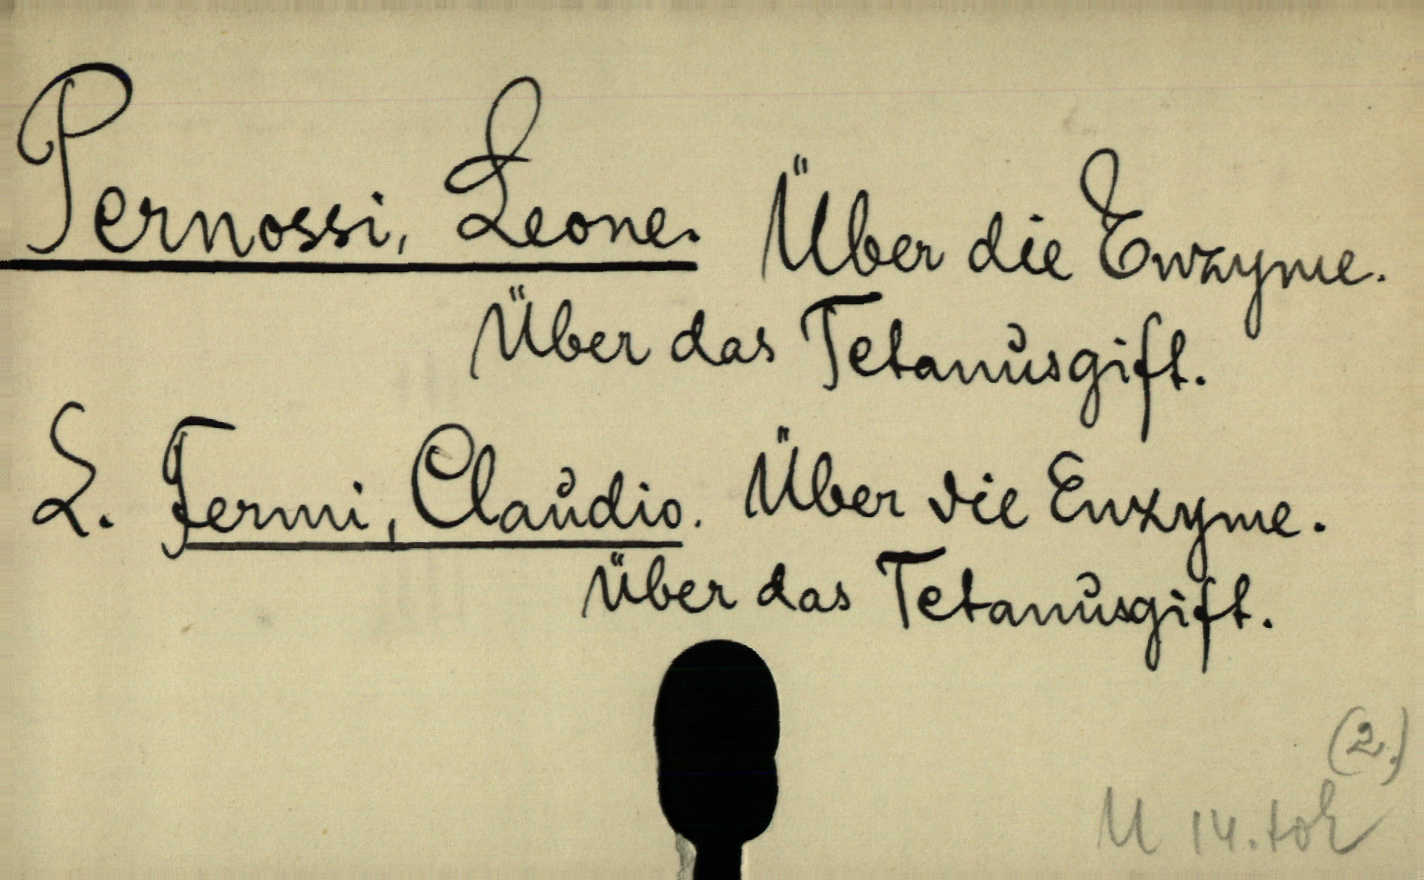 Pernossi, Leone. Über die Enzyme.
Über das Tetanusgift.
L. Fermi, Claudio. Über die Enzyme.
Über das Tetanusgift.
(2.)
M 14.tok